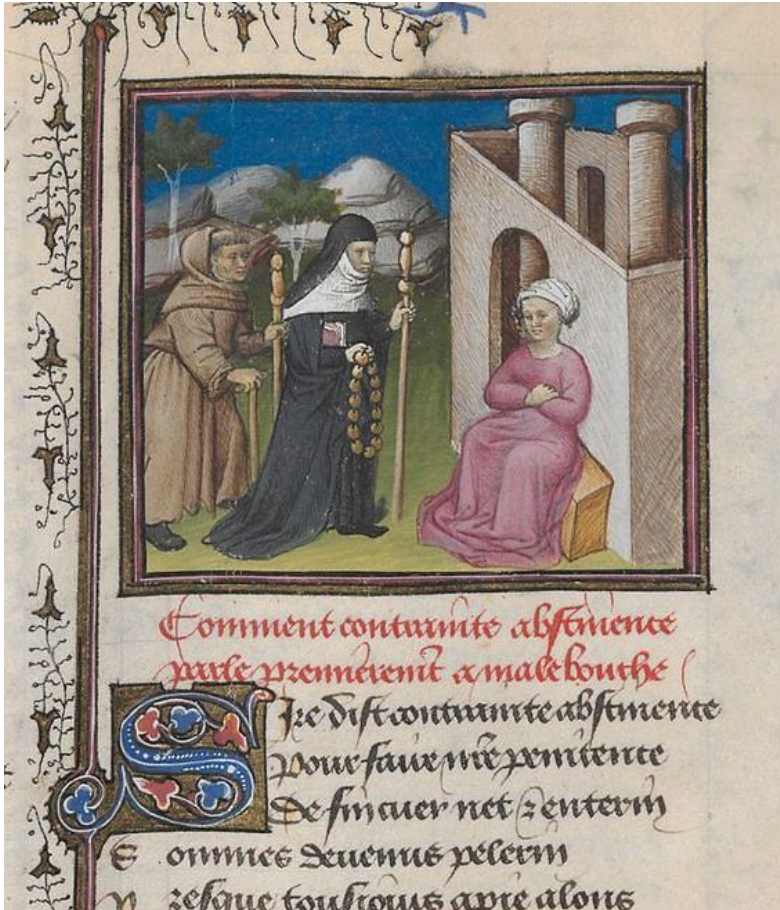 Comment contrainte abstinence
parle premierem̄t a malebouche
Sire dist contrainte abstinence
Pour faire nr̄e penitence
De fin cuer net z enterin
Sommes deuenus pelerin
Presque tousiours a pie alons